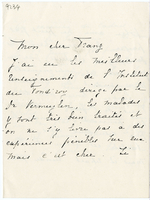 Mon cher Franz
J'ai eu les meilleurs
renseignements de l'Institut
du Fond'Roy dirigé par le
Dr Vermeylen, les malades
y sont très bien traités et
on ne s'y livre pas à des
expériences pénibles sur eux
mais c'est cher. Le